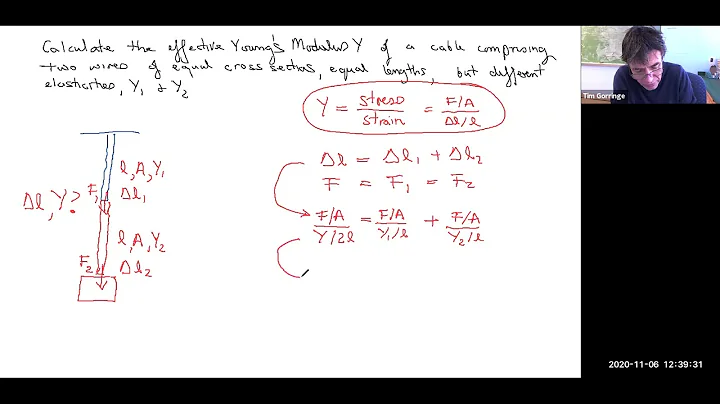 Calculate the effective Young's Modulus Y of a cable comprising
two wires of equal cross section, equal lengths, but different
elasticities, Y₁ & Y₂
Y = stress/strain = F/A / Δl/l
Δl = Δl₁ + Δl₂
F = F₁ = F₂
F/A / Y/2l = F/A / Y₁/l + F/A / Y₂/l
l, A, Y₁
Δl, Y?
F₁
Δl₁
l, A, Y₂
F₂
Δl₂
Tim Gorringe
2020-11-06 12:39:31